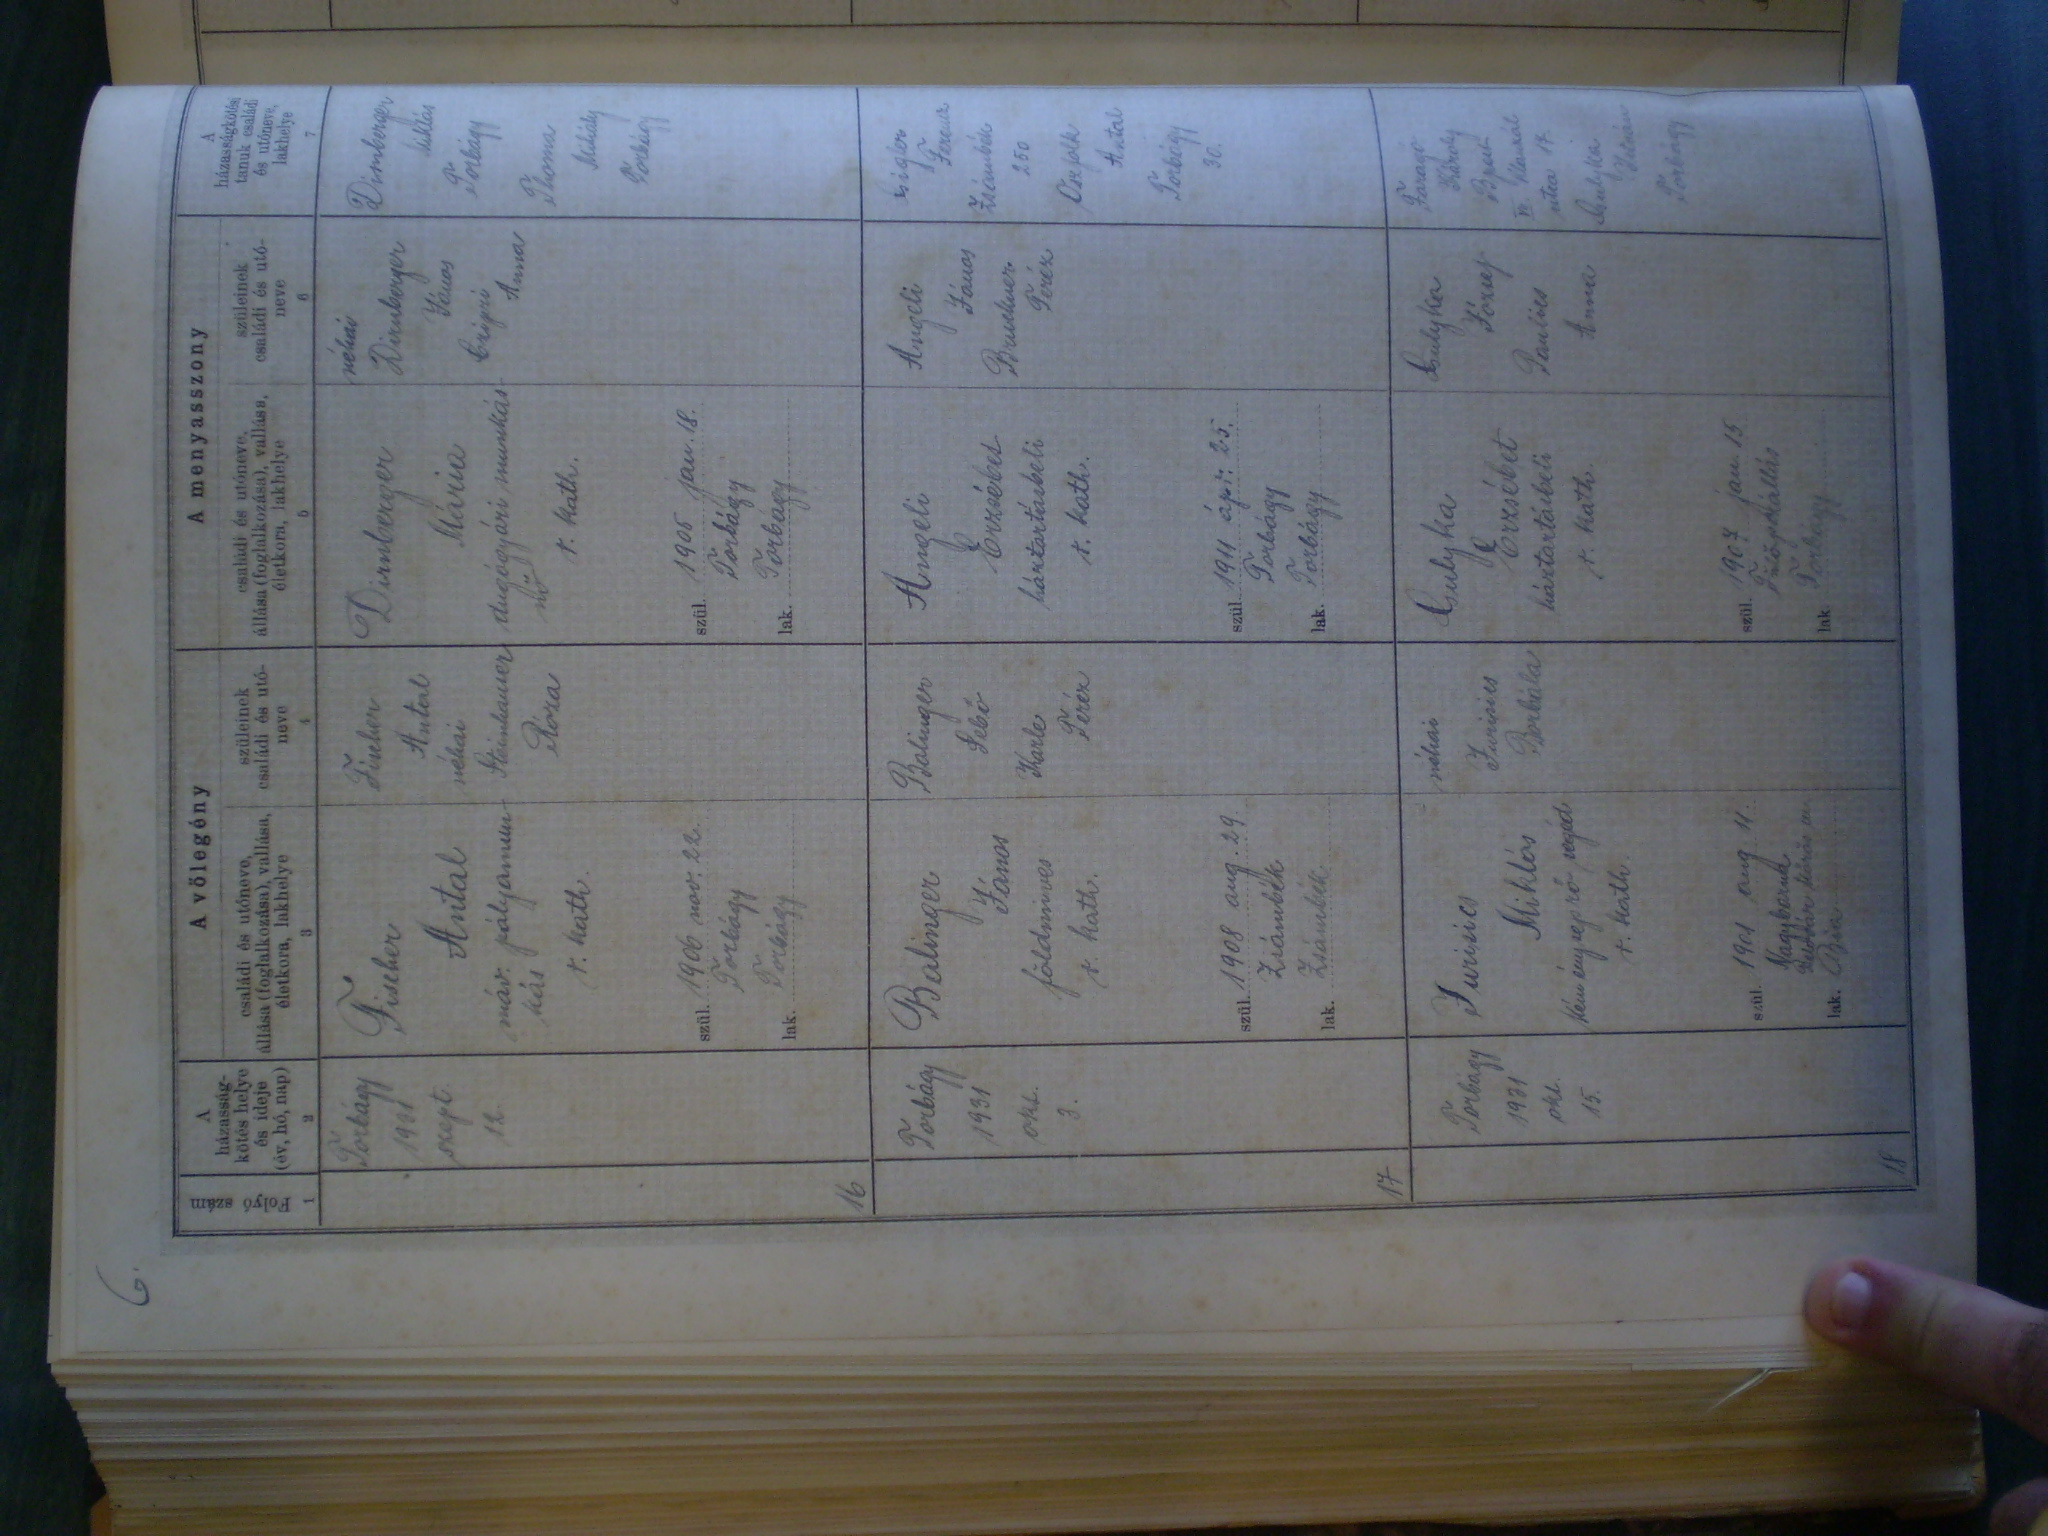 6.
A völegény
A menyasszony
Folyó szám
1
A
házasság-
kötés helye
és ideje
(év, hó, nap)
2
családi és utóneve,
állása (foglalkozása), vallása,
életkora, lakhelye
3
szüleinek
családi és utó-
neve
4
családi és utóneve,
állása (foglalkozása), vallása,
életkora, lakhelye
5
szüleinek
családi és utó-
neve
6
A
házasságkötési
tanuk családi
és utóneve,
lakhelye
7
16
Torbágy
1931
szept.
12.
Fischer
Antal
máv. pályamun
kás
r. kath.
szül. 1906 nov. 22.
Torbágy
Torbágy
lak.
Fischer
Antal
néhai
Steinhauser
Róza
Dirnberger
Mária
dugógyári munkás
nő
r. kath.
szül. 1905 jan. 18.
Torbágy
Torbágy
lak.
néhai
Dirnberger
János
Czipri
Anna
Dirnberger
Miklós
Torbágy
Thoma
Mihály
Torbágy
17
Torbágy
1931
okt.
3.
Balinger
János
földmíves
r. kath.
szül. 1908 aug. 29.
Zsámbék
Zsámbék
lak.
Balinger
Sebő
Karle
Teréz
Angeli
Erzsébet
háztartásbeli
r. kath.
szül. 1911 ápr. 25.
Torbágy
Torbágy
lak.
Angeli
János
Bruckner
Teréz
Ferenc
Zsámbék
250
Antal
Torbágy
30.
18
Torbágy
1931
okt.
15.
Jurisics
Miklós
kéményseprő segéd
r. kath.
szül. 1901 aug 11.
Nagybarod
Bia
lak.
néhai
Jurisics
Borbála
Gulyka
Erzsébet
háztartásbeli
r. kath.
szül. 1907 jan 15
Torbágy
lak.
Gulyka
József
Paulics
Anna
Faragó
Károly
Bpest
utca 17.
Gulyka
Torbágy